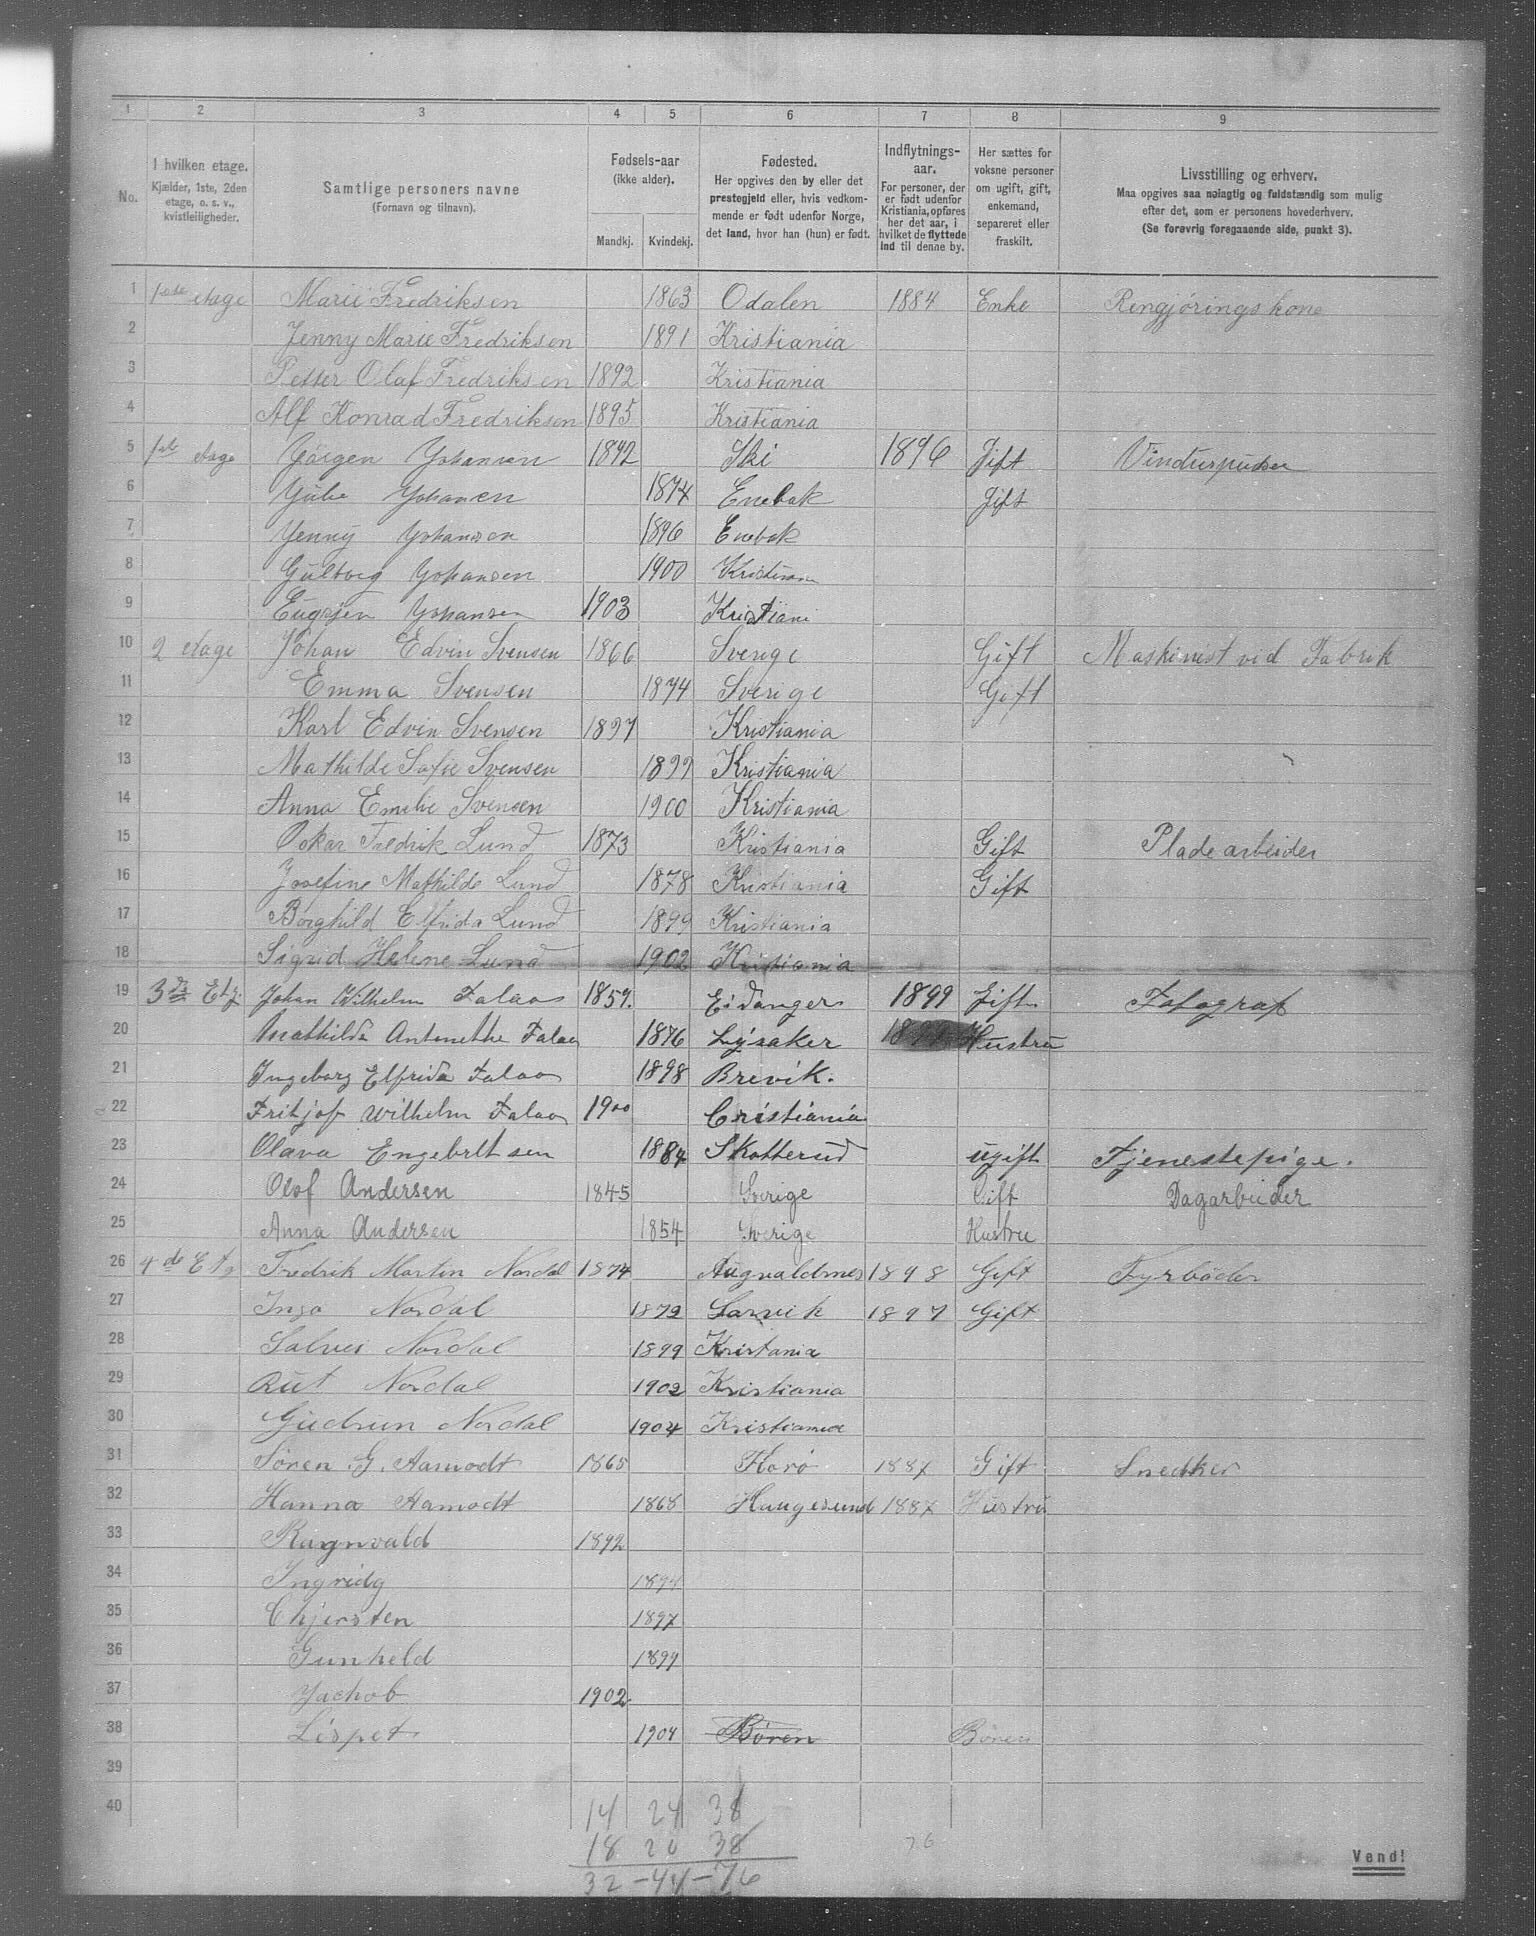 1 2 3 4 5 6 7 8 9
No.
I hvilken etage.
Kjælder, 1ste, 2den
etage, o. s. v.,
kvistleiligheder.
Samtlige personers navne
(Fornavn og tilnavn).
Fødsels-aar
(ikke alder).
Mandkj. Kvindekj.
Fødested.
Her opgives den by eller det
prestegjeld eller, hvis vedkom-
mende er født udenfor Norge,
det land, hvor han (hun) er født.
Indflytnings-
aar.
For personer, der
er født udenfor
Kristiania, opføres
her det aar, i
hvilket de flyttede
ind til denne by.
Her sættes for
voksne personer
om ugift, gift,
enkemand,
separeret eller
fraskilt.
Livsstilling og erhverv.
Maa opgives saa nøiagtig og fuldstændig som mulig
efter det, som er personens hovederhverv.
(Se forøvrig foregaaende side, punkt 3).
1 1ste etage Marie Fredriksen 1863 Odalen 1884 Enke Rengjøringskone
2 Jenny Marie Fredriksen 1891 Kristiania
3 Petter Olaf Fredriksen 1892 Kristiania
4 Alf Konrad Fredriksen 1895 Kristiania
5 1ste etage Jörgen Johansen 1872 Ski 1896 Gift Vinduspudser
6 Johansen 1874 Enebak Gift
7 Jenny Johansen 1896 Enebak
8 Gulborg Johansen 1900 Kristian
9 Eugsjen Johansen 1903 Kristiani
10 2 etage Johan Edvin Svensen 1866 Sverige Gift Maskinist ved Fabrik
11 Emma Svensen 1874 Sverige Gift
12 Karl Edvin Svensen 1897 Kristiania
13 Mathilde Sofie Svensen 1899 Kristiania
14 Anna Emilie Svensen 1900 Kristiania
15 Oskar Fredrik Lund 1873 Kristiania Gift Pladearbeider
16 Josefine Mathilde Lund 1878 Kristiania Gift
17 Borghild Elfrida Lund 1899 Kristiania
18 Sigrid Helene Lund 1902 Kristiania
19 3die Etg. Johan Wilhelm Falaas 1859. Eidanger 1899 Gift Fotograf
20 Mathilda Antonethe Falaas 1876 Lysaker 1899 Hustru
21 Ingeborg Elfrida Falaas 1898 Brevik.
22 Fritjof Wilhelm Falaas 1900 Cristiania
23 Olava Engebrettsen 1884 Skotterud ugift Tjenestepige.
24 Olof Andersen 1845 Sverige Gift Dagarbeider
25 Anna Andersen 1854 Sverige Hustru
26 4de Etg Fredrik Martin Nordal 1874 Augvaldnes 1898 Gift Fyrbøder
27 Inga Nordal 1872 Larvik 1897 Gift
28 Solvei Nordal 1899 Kristania
29 Rut Nordal 1902 Kristiania
30 Gudrun Nordal 1904 Kristiania
31 Søren G. Aamodt 1865 Florø 1887 Gift Snedker
32 Hanna Aamodt 1868 Haugesund 1887 Hustru
33 Ragnvald 1892
34 Ingridg 1894
35 Chjersten 1897
36 Gunheld 1899
37 Jachob 1902
38 Lispet 1904 Børen Børen
39
40
14 24 38
18 20 38
32 - 44 - 76
76
Vend!